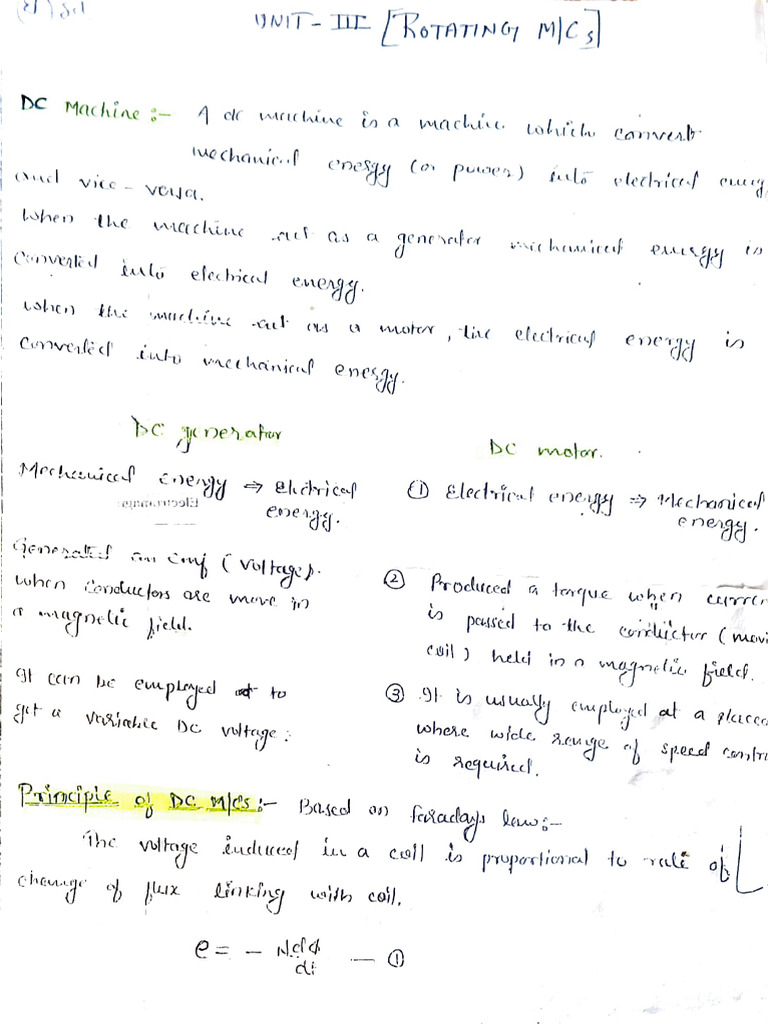 UNIT-III [ROTATING M/Cs]
DC Machine :- A dc machine is a machine which convert
mechanical energy (or power) into electrical energ
and vice-versa.
When the machine act as a generator mechanical energy is
converted into electrical energy.
when the machine act as a motor, the electrical energy is
converted into mechanical energy.
DC generator
Mechanical energy ⇒ Electrical
energy.
Generated an emf (voltage).
when conductors are move in
a magnetic field.
It can be employed to
get a variable DC voltage :
DC motor.
① Electrical energy ⇒ Mechanical
energy.
② Produced a torque when curren
is passed to the conductor (movi
coil) held in a magnetic field.
③ It is usually employed at a places
where wide range of speed contr
is required.
Principle of DC M/Cs :- Based on faradays law :-
The voltage induced in a coil is proportional to rate of
change of flux linking with coil.
e = - Ndϕ/dt — ①